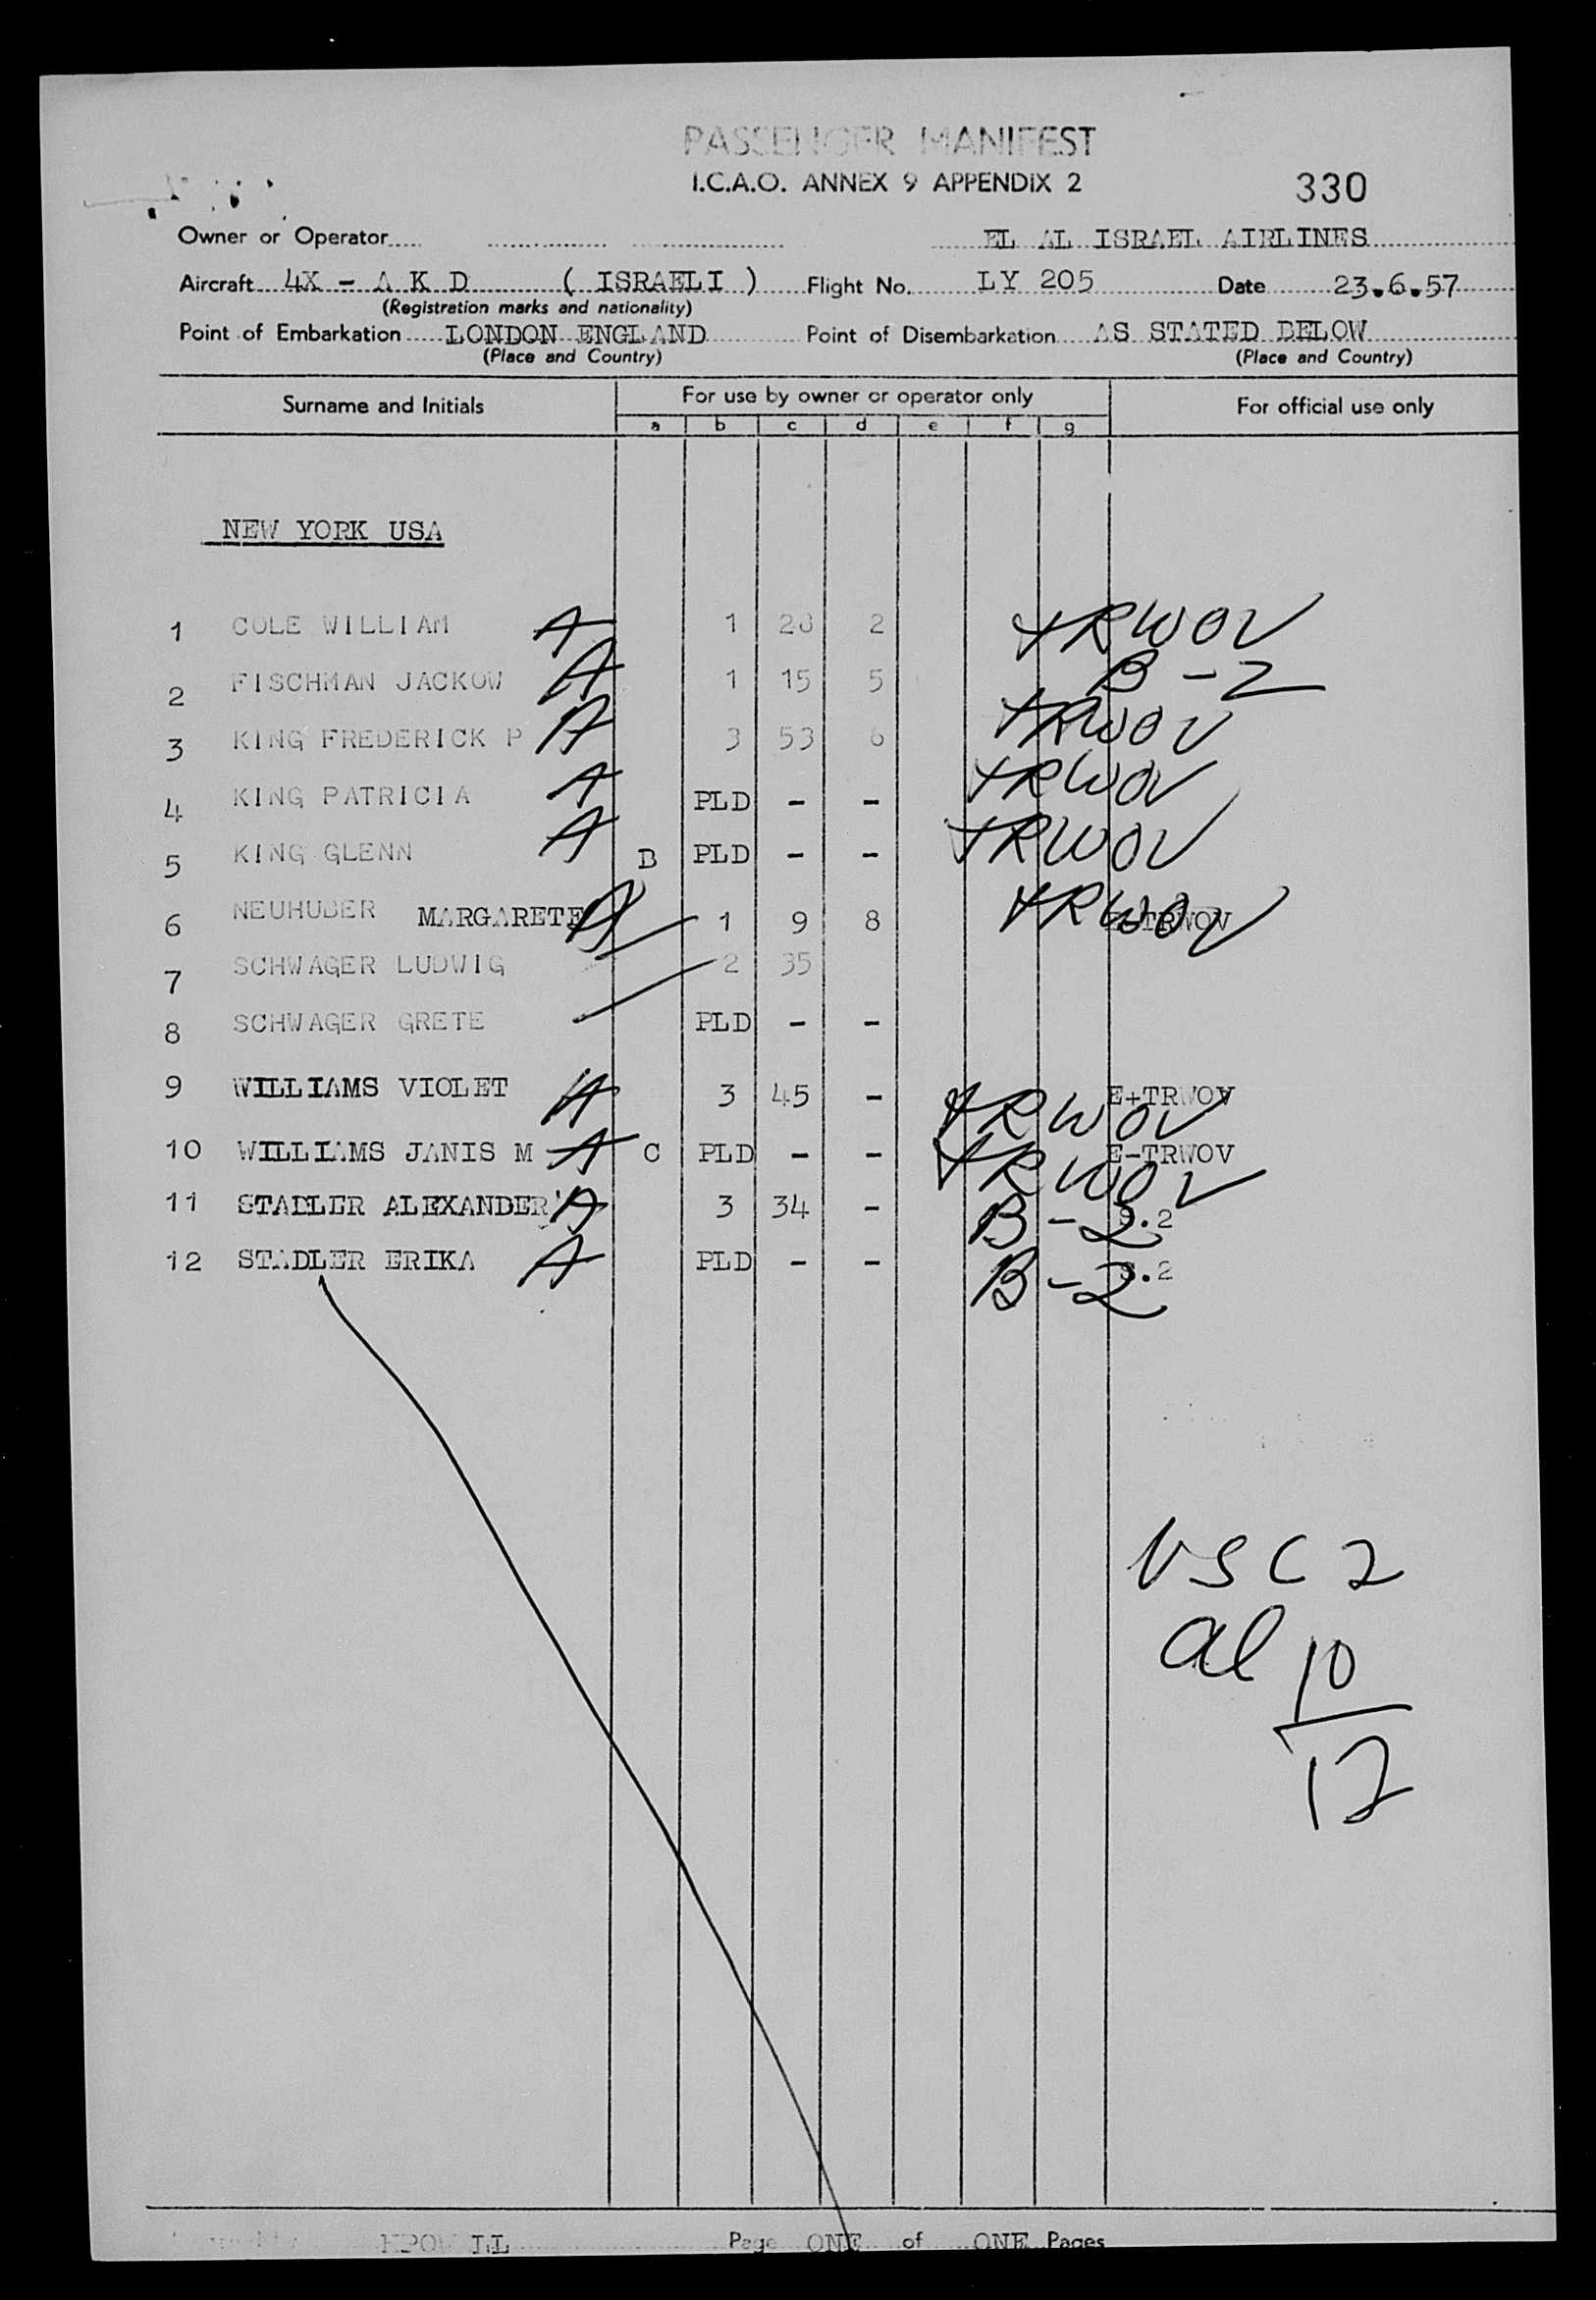 PASSENGER MANIFEST
I.C.A.O. ANNEX 9 APPENDIX 2
330
Owner or Operator EL AL ISRAEL AIRLINES
Aircraft 4X - A K D ( ISRAELI ) Flight No. LY 205 Date 23.6.57
(Registration marks and nationality)
Point of Embarkation LONDON ENGLAND Point of Disembarkation AS STATED BELOW
(Place and Country) (Place and Country)
Surname and Initials For use by owner or operator only For official use only
a b c d e f g
NEW YORK USA
1 COLE WILLIAM A 1 28 2 +RWOV
2 FISCHMAN JACKOW A 1 15 5 B-2
3 KING FREDERICK P A 3 53 6 +RWOV
4 KING PATRICIA A PLD - - +RWOV
5 KING GLENN A B PLD - - +RWOV
6 NEUHUBER MARGARETE A 1 9 8 +RWOV TRWOV
7 SCHWAGER LUDWIG 2 35
8 SCHWAGER GRETE PLD - -
9 WILLIAMS VIOLET A 3 45 - +RWOV E+TRWOV
10 WILLIAMS JANIS M A C PLD - - +RWOV E-TRWOV
11 STADLER ALEXANDER A 3 34 - B-2 .2
12 STADLER ERIKA A PLD - - B-2 .2
USC 2
al 10
12
Page ONE of ONE Pages